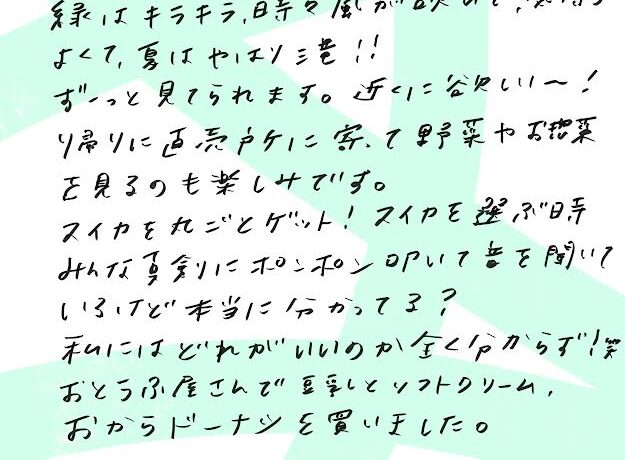 緑はキラキラ、時々風が吹いて、気持ち
よくて、夏はやはり滝!!
ずーっと見てられます。近くに欲しい〜!
り帰りに直売所に寄って野菜やお惣菜
を見るのも楽しみです。
スイカを丸ごとゲット!スイカを選ぶ時
みんな真剣にポンポン叩いて音を聞いて
いるけど本当に分かってる?
私にはどれがいいのか全く分からず!笑
おとうふ屋さんで豆乳とソフトクリーム、
おからドーナツを買いました。